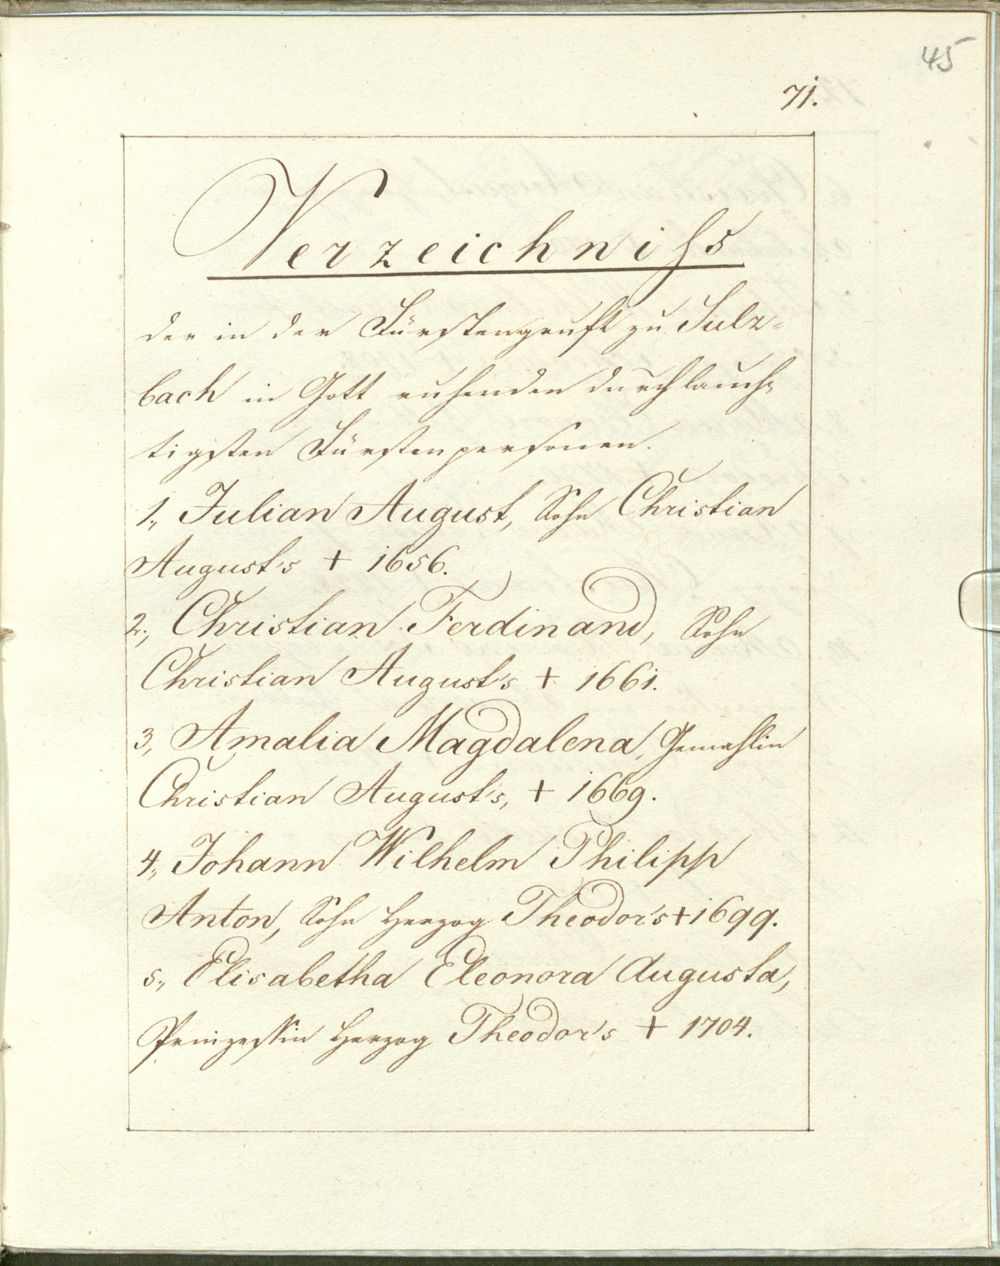 45
71.
Verzeichniß
der in der Fürstengruft zu Sulz-
bach in Gott ruhenden durchlauch-
tigsten Fürstenpersonen.
1., Julian August, Sohn Christian
August's † 1656.
2., Christian Ferdinand, Sohn
Christian August's † 1661.
3., Amalia Magdalena, Gemahlin
Christian August's, † 1669.
4., Johann Wilhelm Philipp
Anton, Sohn Herzog Theodor's † 1699.
5., Elisabetha Eleonora Augusta,
Prinzessin Herzog Theodor's † 1704.